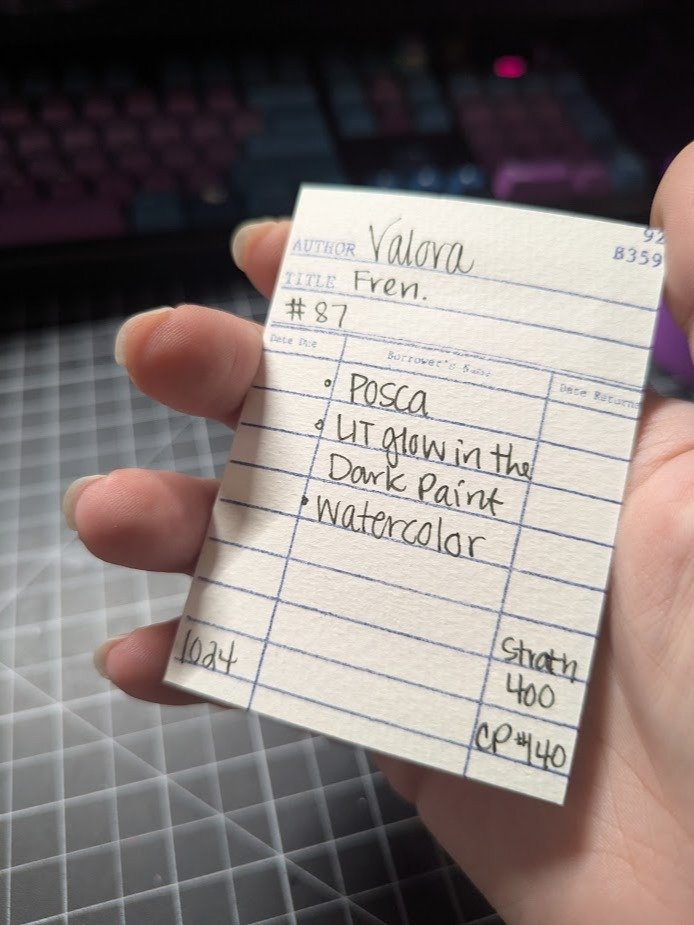 92
B359
AUTHOR Valora
TITLE Fren.
#87
Date Due Borrower's Name Date Return
• POSCA
• UT glow in the
Dark Paint
• Watercolor
1024
Strath
400
CP #140